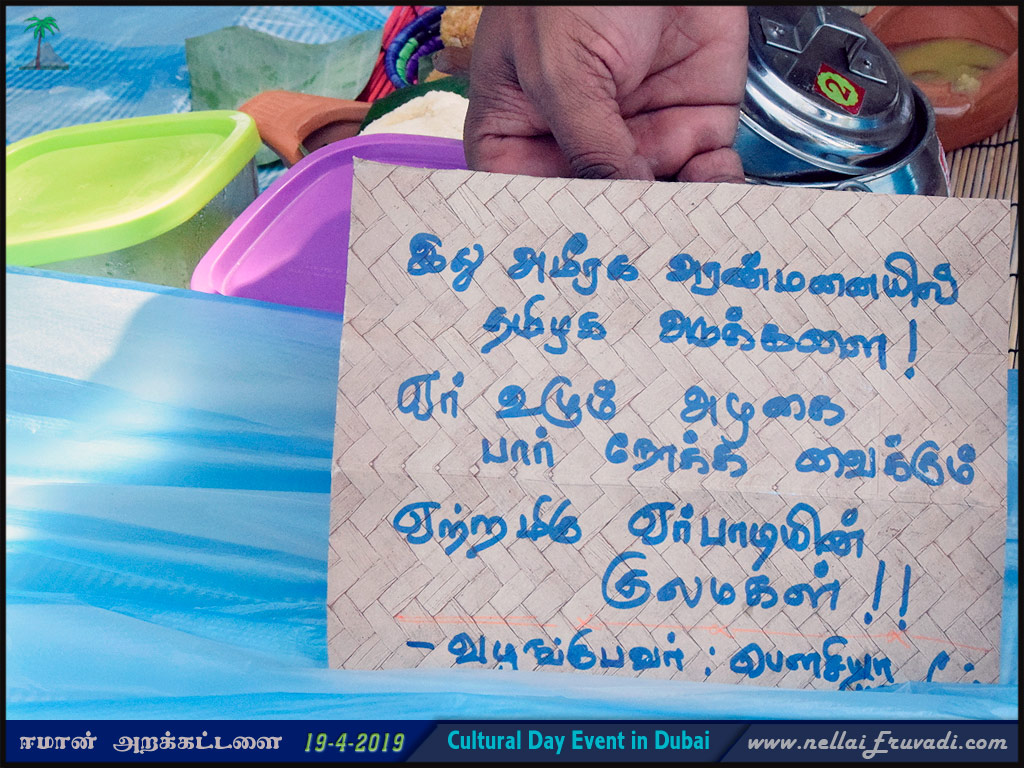 2
இது அமீரக அரண்மனையில்
தமிழக அடுக்களை!
ஏர் உழும் அழகை
பார் நோக்க வைக்கும்
ஏற்றமிகு ஏர்பாடியின்
குலமகள்!!
- வழங்குபவர் : பௌசியா
ஈமான் அறக்கட்டளை 19-4-2019 Cultural Day Event in Dubai www.nellaiEruvadi.com